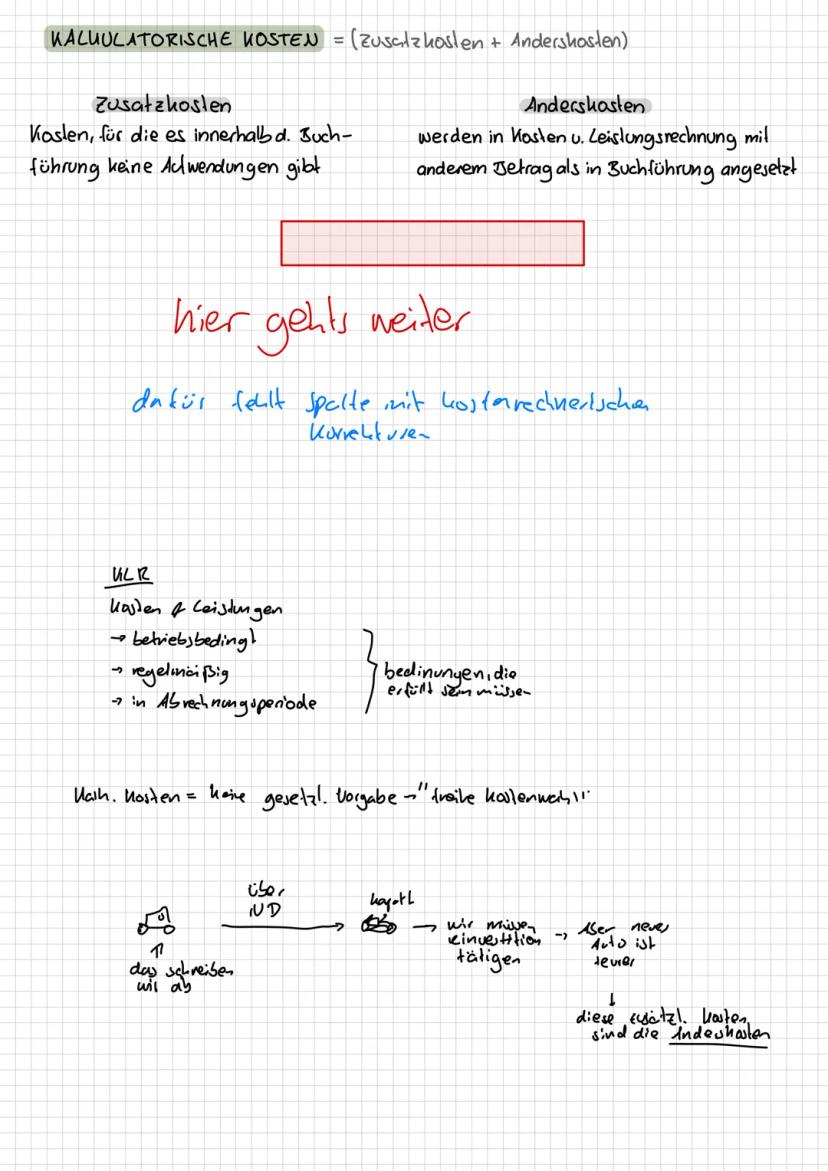 KALKULATORISCHE KOSTEN = (Zusatzkosten + Anderskosten)
Zusatzkosten
Kosten, für die es innerhalb d. Buch-
führung keine Aufwendungen gibt
Anderskosten
werden in Kosten u. Leistungsrechnung mit
anderem Betrag als in Buchführung angesetzt
hier gehts weiter
dafür fehlt Spalte mit kostenrechnerischen
Korrekturen
KLR
Kosten & Leistungen
→ betriebsbedingt
→ regelmäßig
→ in Abrechnungsperiode
bedinungen, die
erfüllt sein müssen
Kalk. Kosten = keine gesetzl. Vorgabe → "freie Kostenwahl"
über
ND
kaputt
das schreiben
wir ab
→ wir müssen
einvestition
tätigen
→ Aber neues
Auto ist
teurer
↓
diese zusätzl. Kosten
sind die Anderskosten